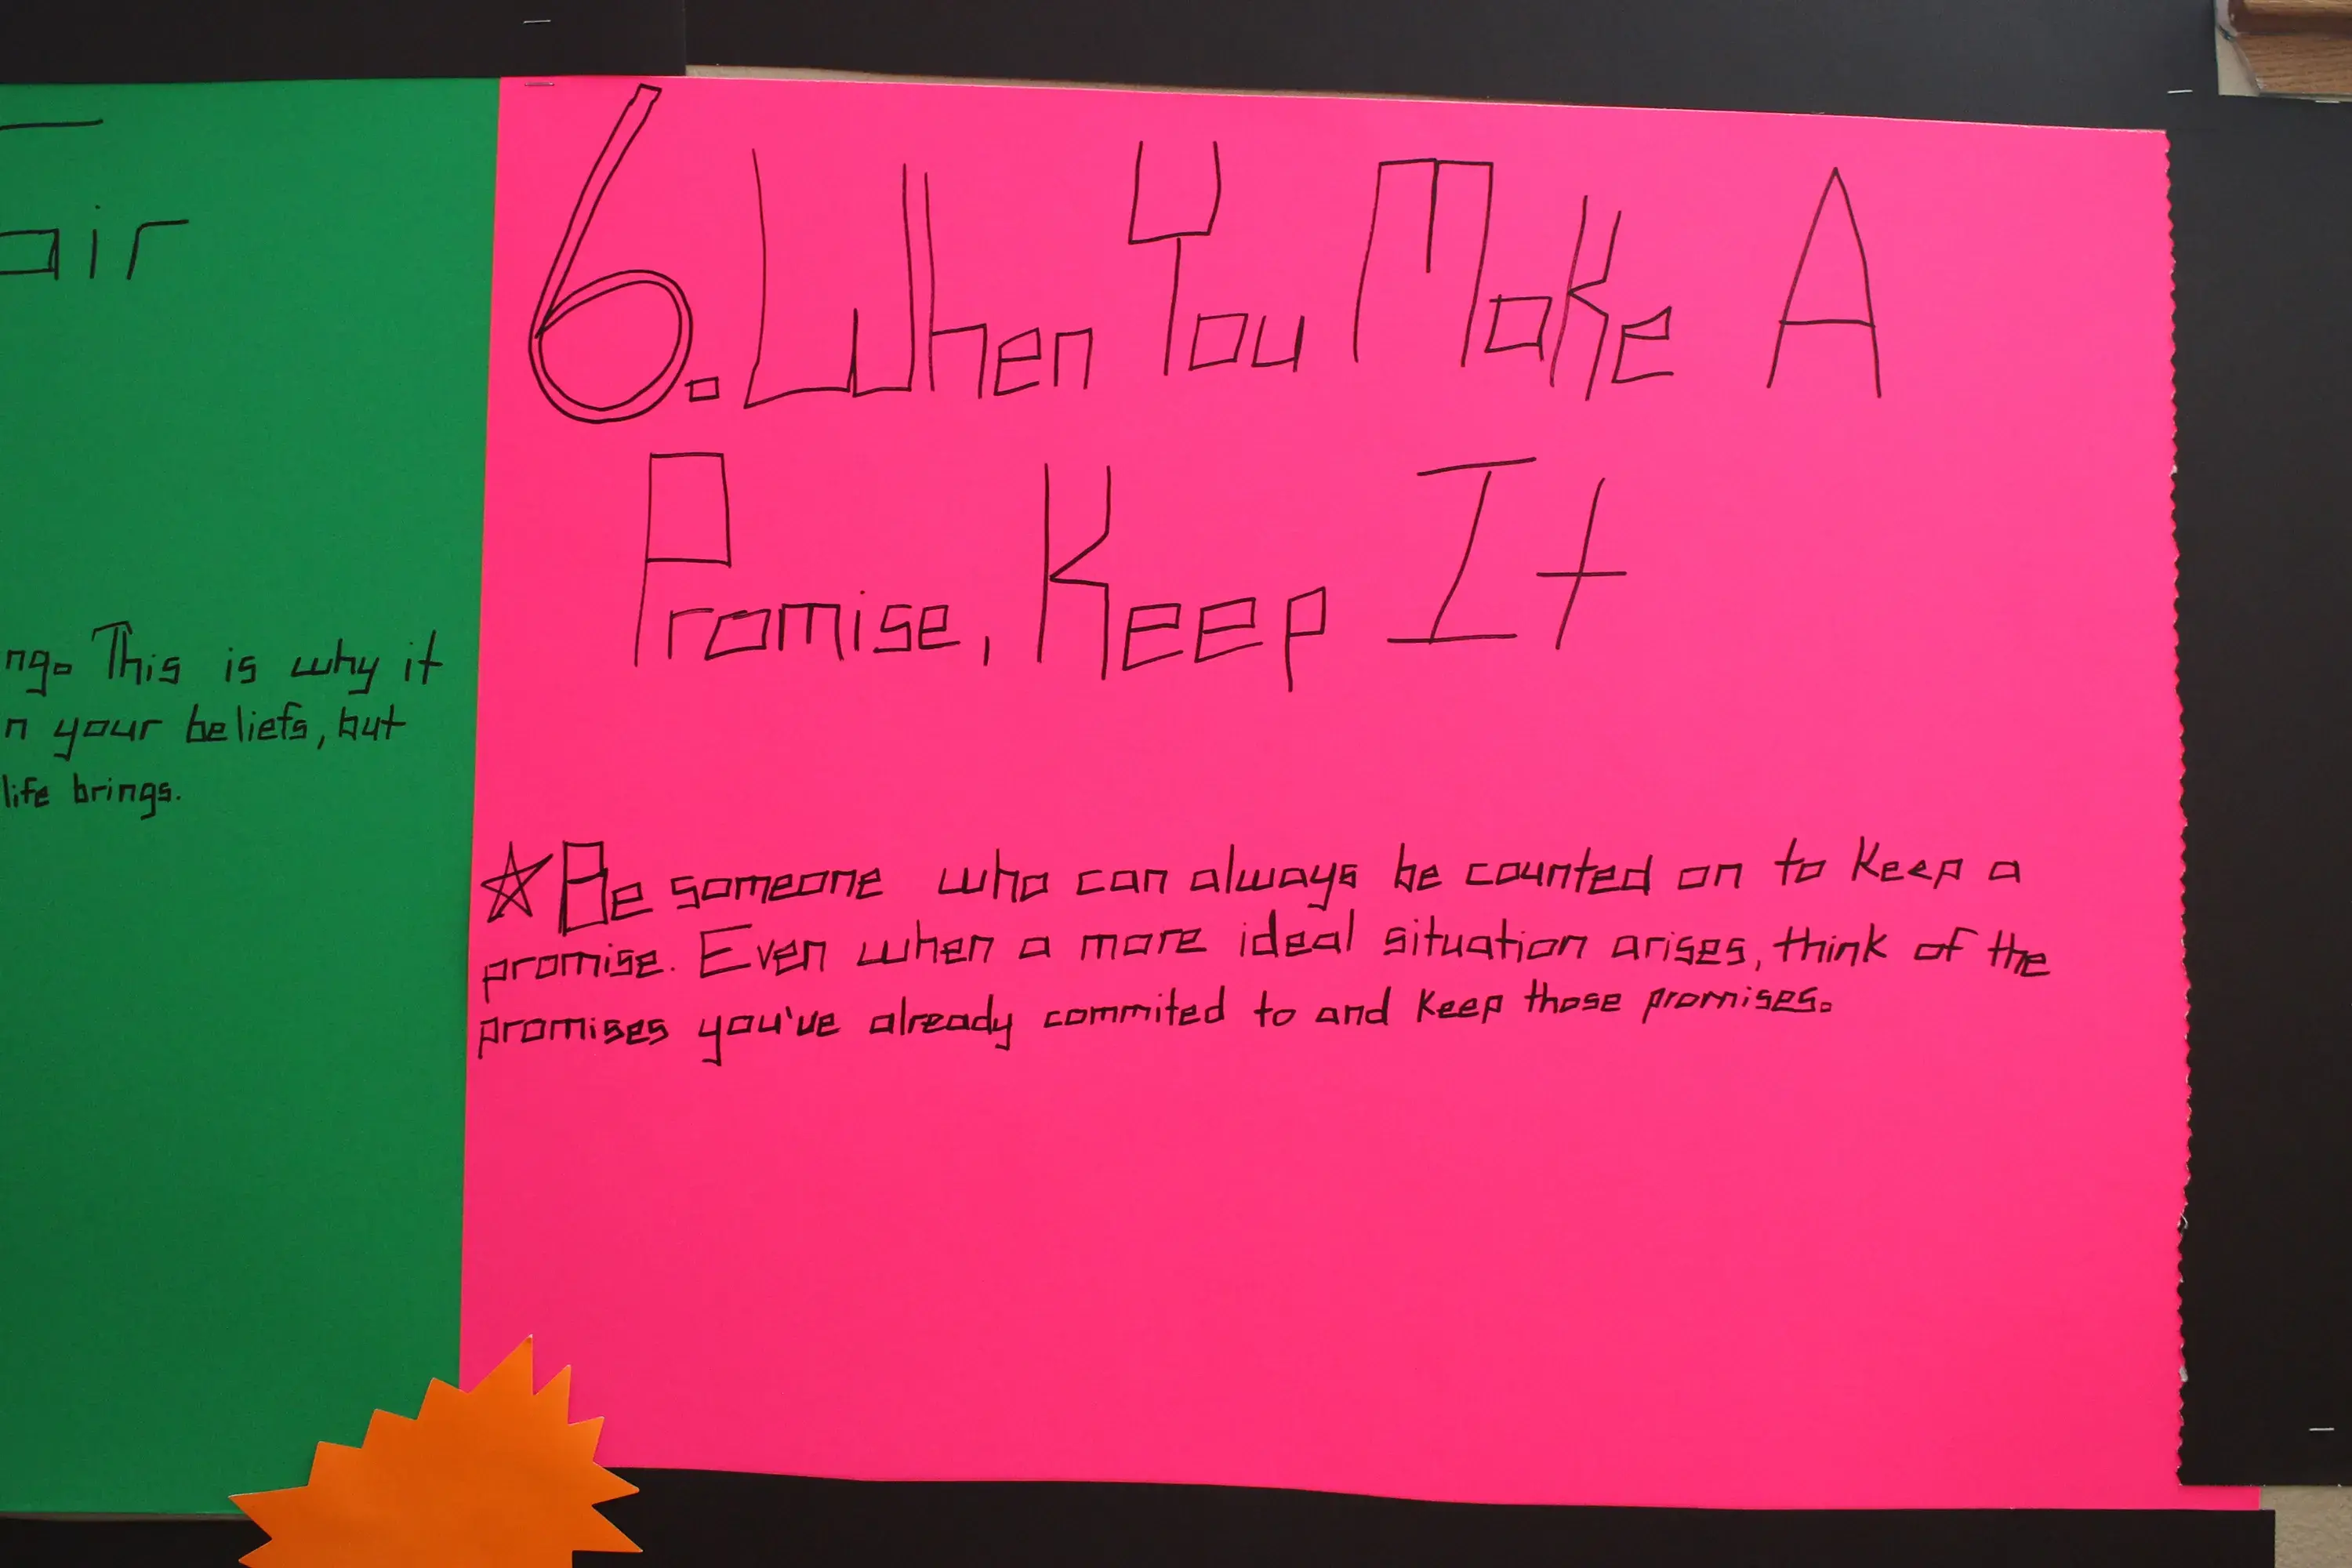 air
ng. This is why it
n your beliefs, but
life brings.
6. When You Make A
Promise, Keep It
☆Be someone who can always be counted on to keep a
promise. Even when a more ideal situation arises, think of the
promises you've already commited to and keep those promises.